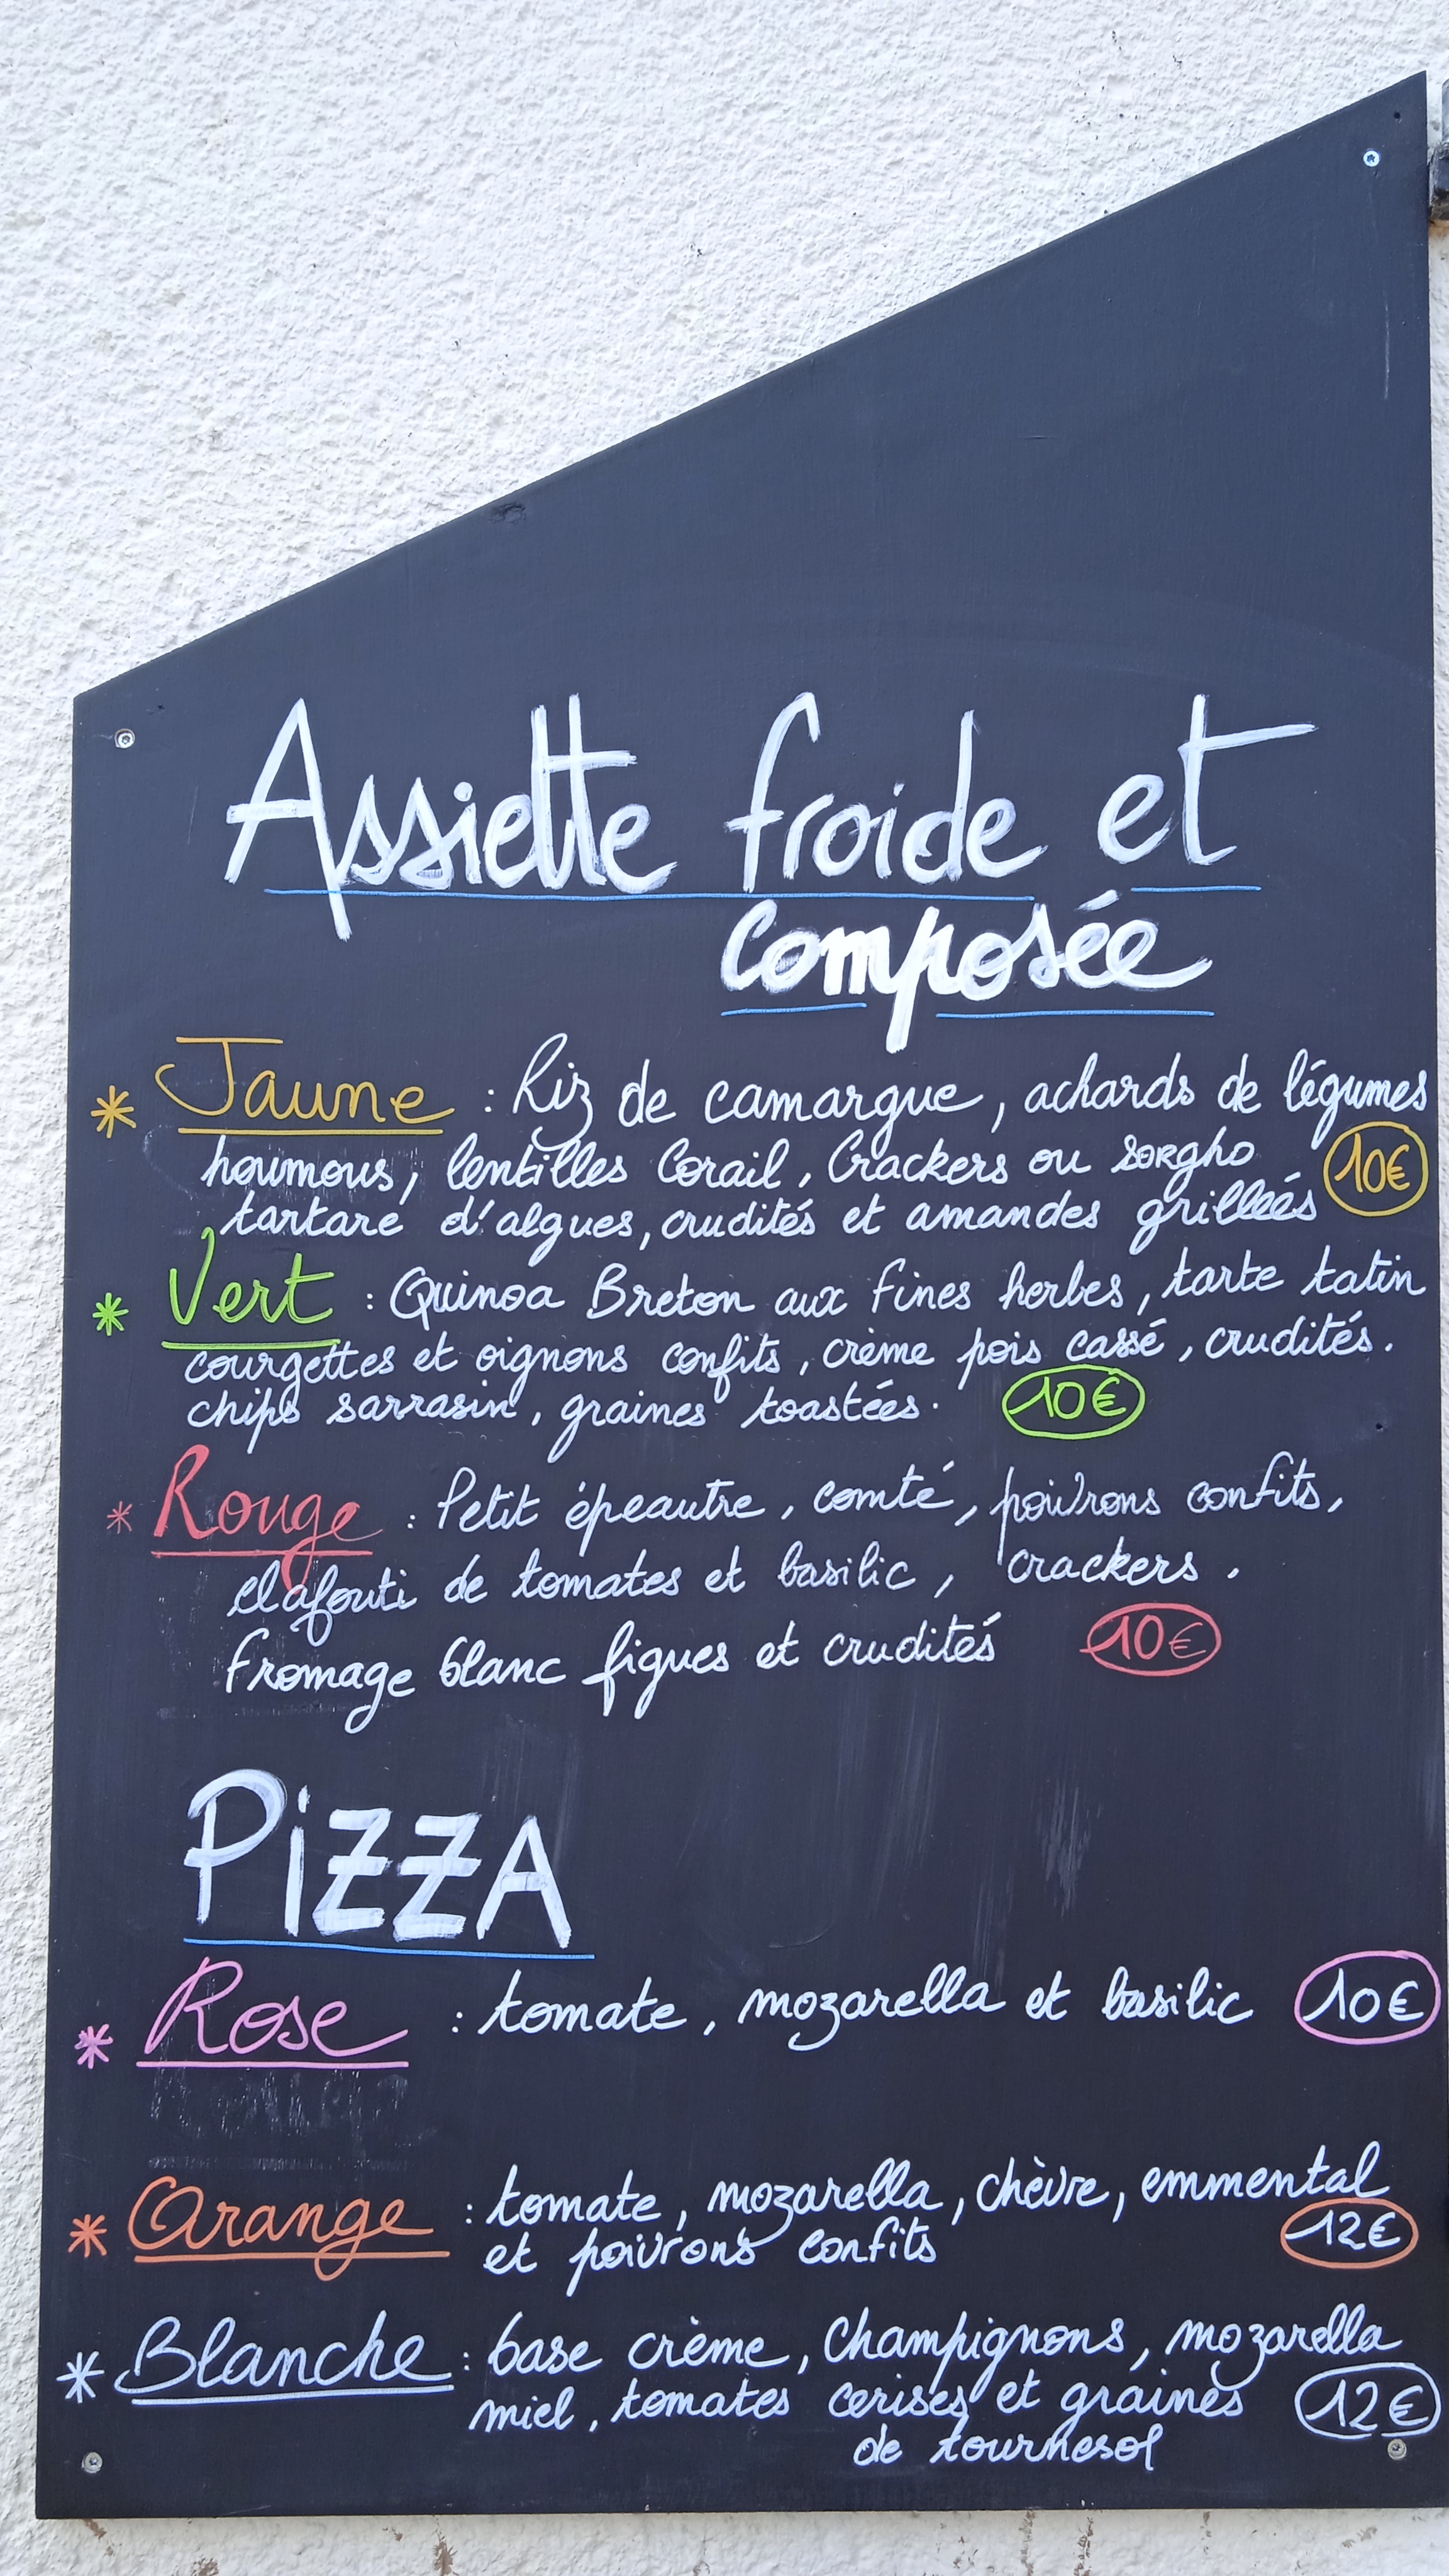 Assiette froide et
composée
* Jaune : Riz de camargue, achards de légumes
houmous, lentilles Corail, Crackers ou sorgho 10€
tartare d'algues, crudités et amandes grillées
* Vert : Quinoa Breton aux fines herbes, tarte tatin
courgettes et oignons confits, crème pois cassé, crudités.
chips sarrasin, graines toastées. 10€
* Rouge : Petit épeautre, comté, poivrons confits,
clafouti de tomates et basilic, crackers.
fromage blanc figues et crudités 10€
PiZZA
* Rose : tomate, mozarella et basilic 10€
* Orange : tomate, mozarella, chèvre, emmental
et poivrons confits 12€
* Blanche : base crème, Champignons, mozarella
miel, tomates cerises et graines 12€
de tournesol